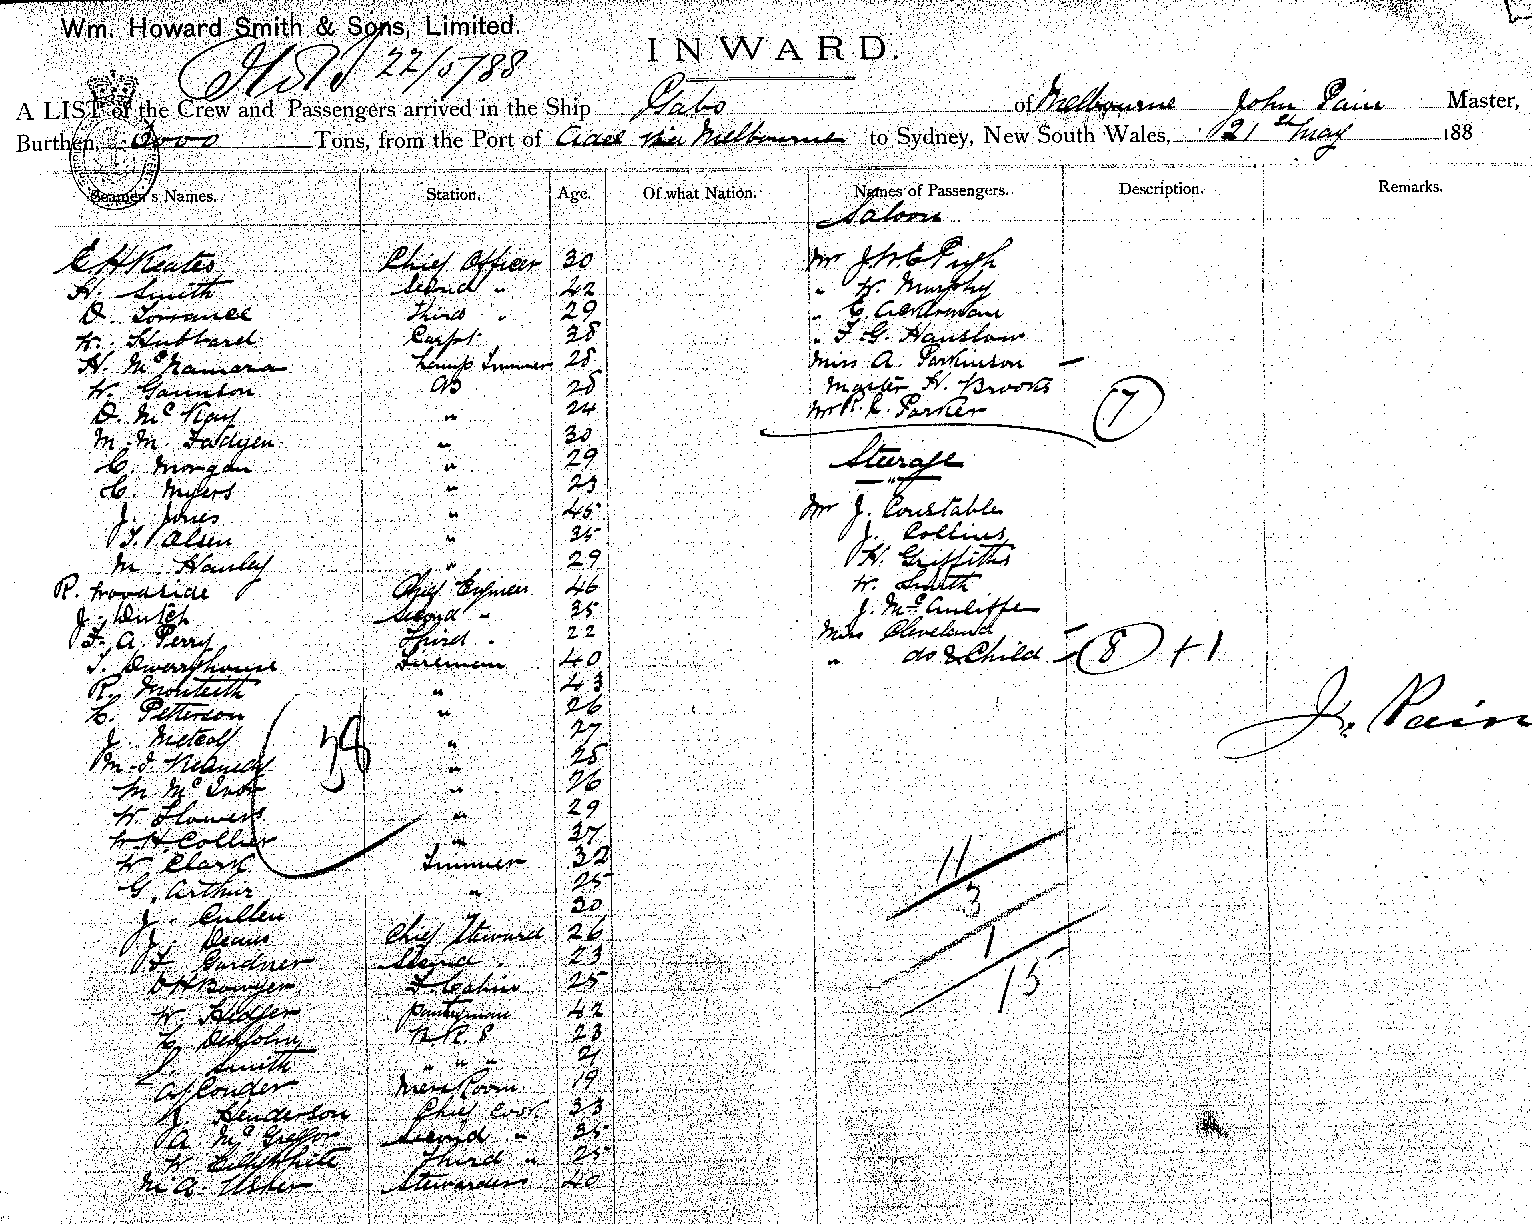 Wm. Howard Smith & Sons, Limited.
22/5/88
INWARD.
A LIST of the Crew and Passengers arrived in the Ship Gabo of Melbourne John Pain Master,
Burthen, Tons, from the Port of via Melbourne to Sydney, New South Wales, 21st May 188
Seamen's Names. Station. Age. Of what Nation. Names of Passengers. Description. Remarks.
Saloon
E H Keates Chief Officer 30 Mr Pugh
H. Smith Second " 42 " W. Murphy
D. Torrance Third " 29 " E.
W. Hubbard Carpt 28 " F G. Hanslow
H. McNamara Lamp Trimmer 28 Miss A. Parkinson –
W. AB 28 Master H. Brooks
D. McKay " 24 Mr R. L. Parker 7
M. M. Fadyen " 30
C. Morgan " 29 Steerage
C. Myers " 23 "
J. Jones " 45 Mr J. Constable
T. Olsen " 35 J. Collins
M. Hanley " 29 H. Griffiths
R. Woodside Chief Engineer 46 W. Smith
J. Dutch Second " 35 J. McAuliffe
F. A. Perry Third " 22 Miss Cleveland –
T. Dwerryhouse Fireman 40 " do & Child – 8 + 1
R. Monteith " 43
C. Petterson " 26
J. Metcalf " 27
38
J. Pain
M. J. Kennedy " 28
M. Mc " 26
W. Flowers " 29
W H. Collier " 37
W Clark Trimmer 32
G. Arthur " 25
J. Cullen 30
J. Deans Chief Steward 26
F. Gardner Second " 23
Bowyer F. Cabin 25
W. Pantryman 42
C. 23
Smith " " " 21
A. Conder Mess Room 19
Henderson Chief Cook 33
A. McGregor Second " 35
W. Lillywhite Third " 25
M. A. Usher Stewardess 40
11
3
1
15